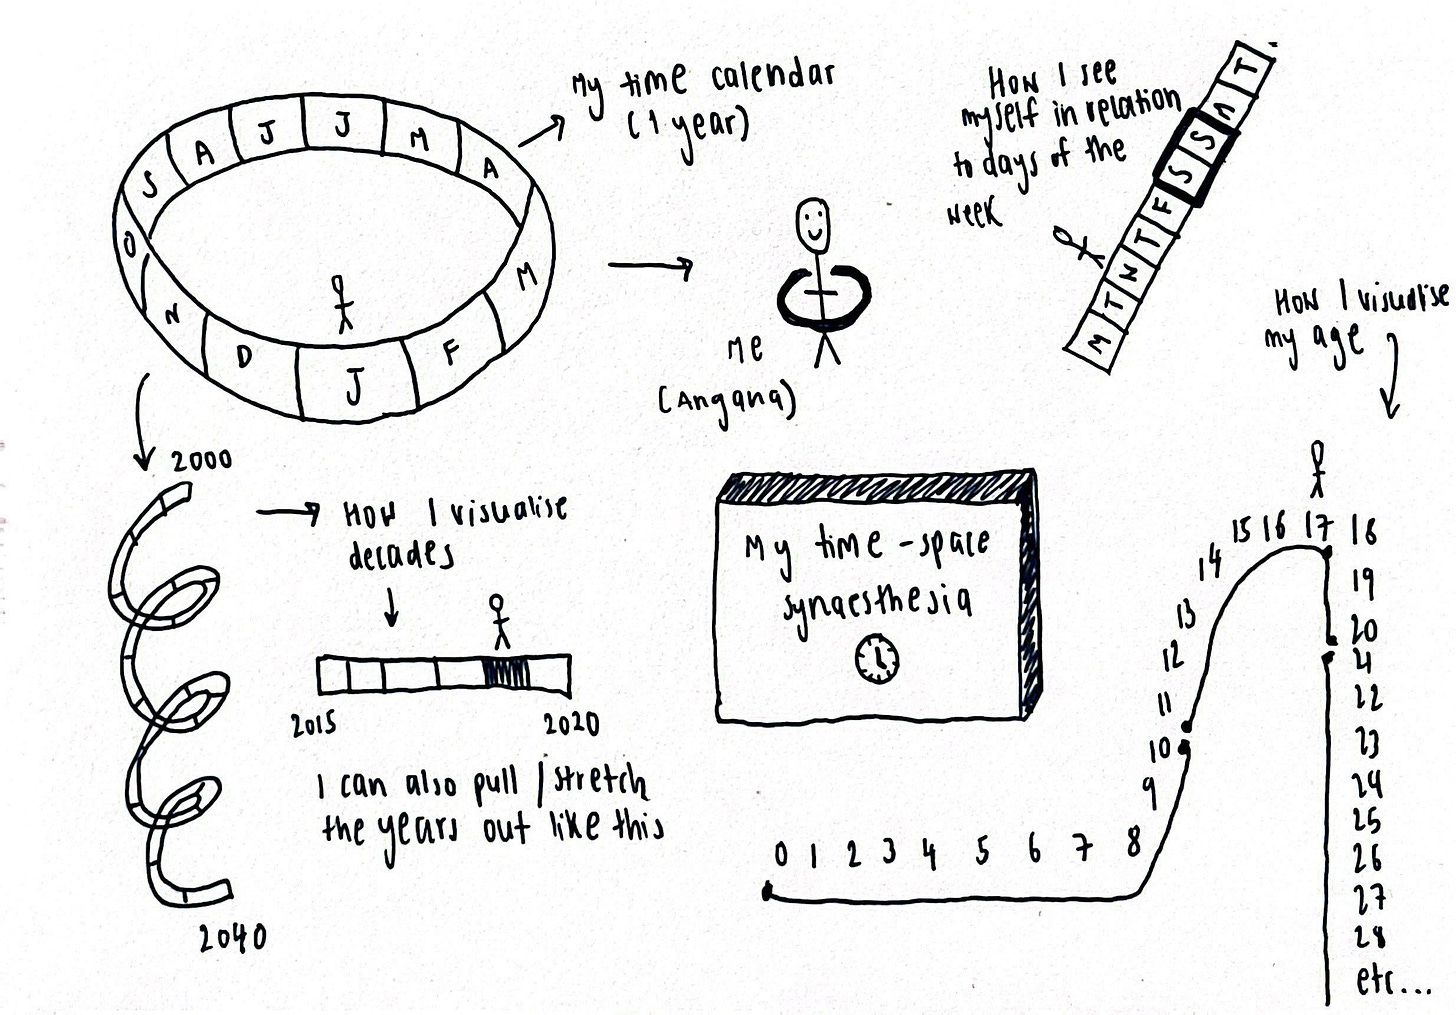 My time calendar
(1 year)
J
F
M
A
M
J
J
A
S
O
N
D
Me
(Angana)
How I see
myself in relation
to days of the
week
M
T
W
T
F
S
S
M
T
How I visualise
my age
2000
2040
How I visualise
decades
2015
2020
I can also pull / stretch
the years out like this
My time-space
synaesthesia
0 1 2 3 4 5 6 7 8
9
10
11
12
13
14
15 16 17 18
19
20
21
22
23
24
25
26
27
28
etc...